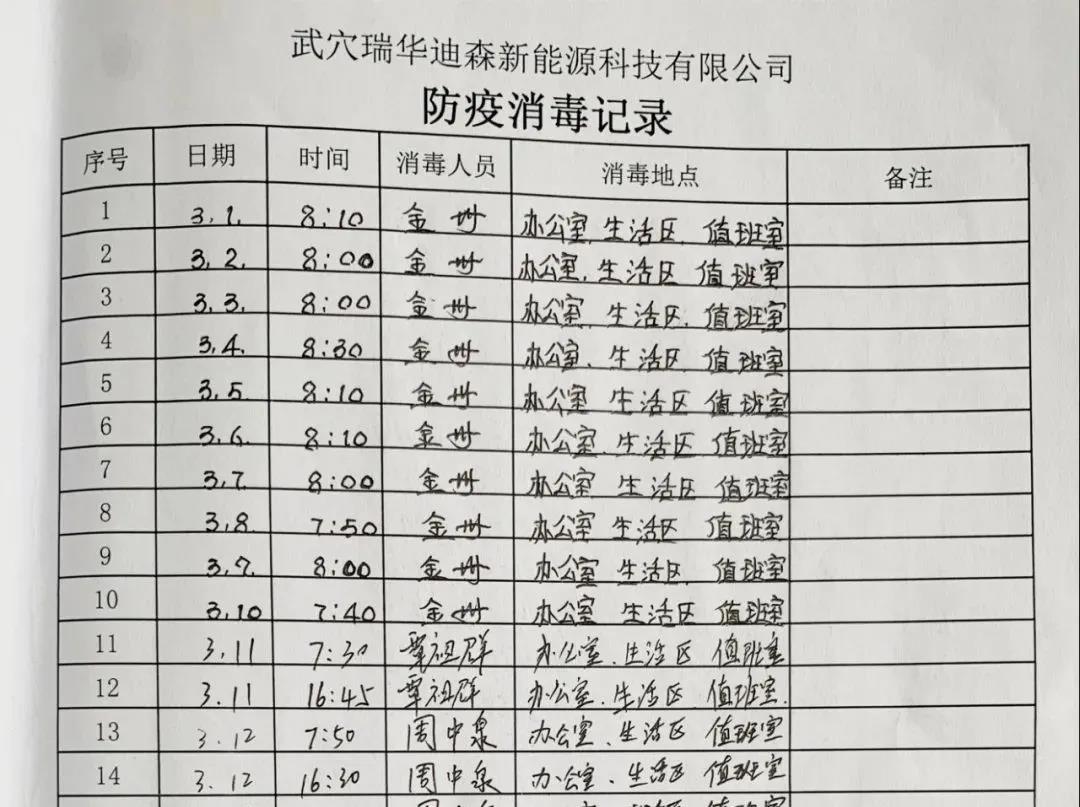 武穴瑞华迪森新能源科技有限公司
防疫消毒记录
序号 日期 时间 消毒人员 消毒地点 备注
1 3.1. 8:10 金州 办公室.生活区.值班室
2 3.2. 8:00 金州 办公室.生活区 值班室
3 3.3. 8:00 金州 办公室.生活区.值班室
4 3.4. 8:30 金州 办公室.生活区 值班室
5 3.5 8:10 金州 办公室 生活区 值班室
6 3.6. 8:10 金州 办公室.生活区.值班室
7 3.7. 8:00 金州 办公室 生活区 值班室
8 3.8. 7:50 金州 办公室 生活区 值班室
9 3.9. 8:00 金州 办公室 生活区. 值班室
10 3.10 7:40 金州 办公室 生活区 值班室
11 3.11 7:30 覃祖群 办公室.生活区 值班室
12 3.11 16:45 覃祖群 办公室.生活区.值班室.
13 3.12 7:50 周中泉 办公室.生活区 值班室
14 3.12 16:30 周中泉 办公室.生活区 值班室